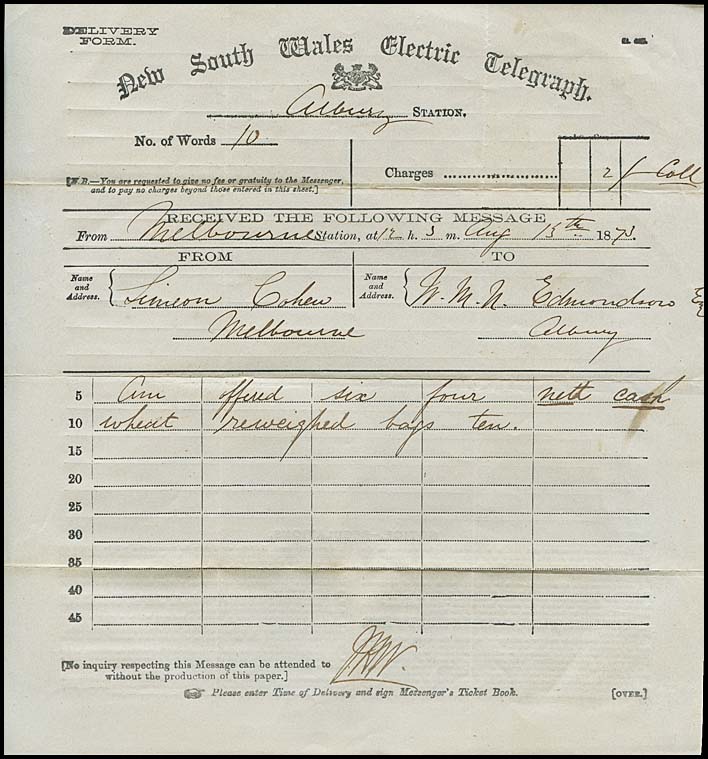 DELIVERY FORM.
New South Wales Electric Telegraph.
Albury STATION.
No. of Words 10
[N.B.—You are requested to give no fee or gratuity to the Messenger, and to pay no charges beyond those entered in this sheet.]
Charges 2/- Coll
RECEIVED THE FOLLOWING MESSAGE
From Melbourne Station, at 12 h. 3 m. Aug 15th 1873.
FROM
TO
Name and Address. Simeon Cohen
Melbourne
Name and Address. W. M. N. Edmondson Esq
Albury
5 Am offered six four neth cash
10 wheat reweighed bags ten.
15
20
25
30
35
40
45
[No inquiry respecting this Message can be attended to without the production of this paper.]
Please enter Time of Delivery and sign Messenger's Ticket Book.
[OVER.]